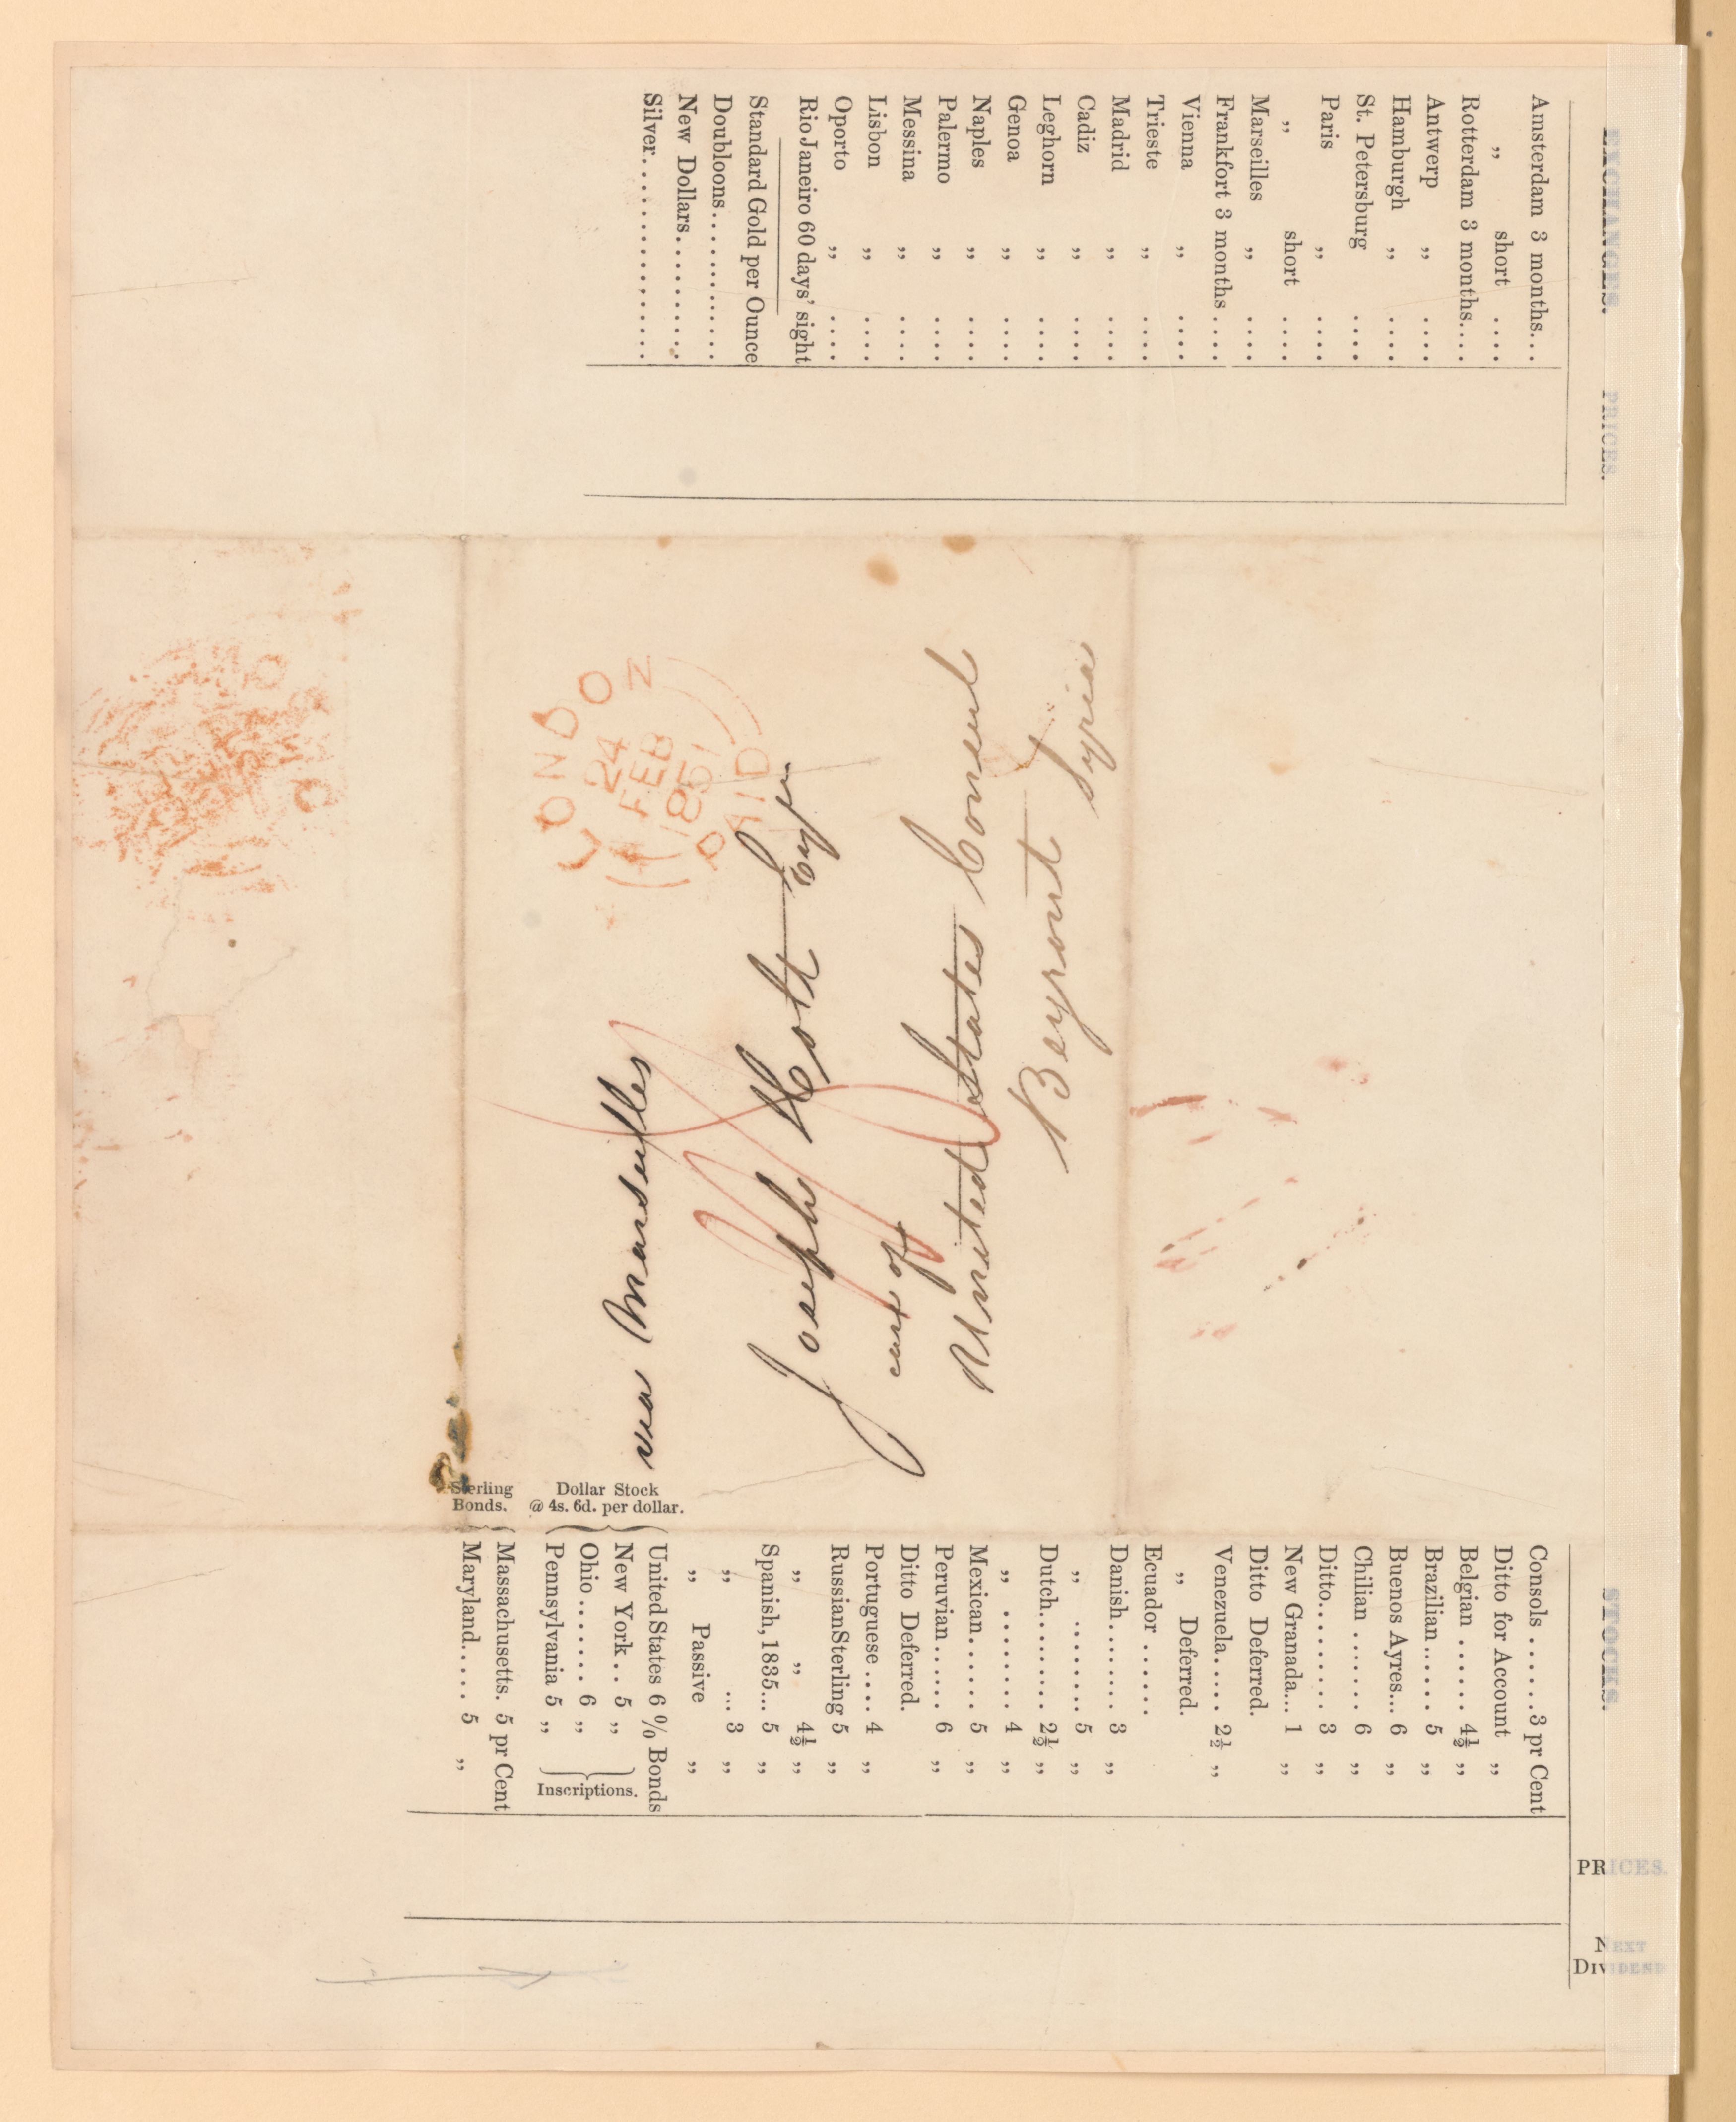 EXCHANGES. PRICES.
Amsterdam 3 months...
„ short ....
Rotterdam 3 months...
Antwerp „ ....
Hamburgh „ ....
St. Petersburg ....
Paris „ ....
„ short ....
Marseilles „ ....
Frankfort 3 months ....
Vienna „ ....
Trieste „ ....
Madrid „ ....
Cadiz „ ....
Leghorn „ ....
Genoa „ ....
Naples „ ....
Palermo „ ....
Messina „ ....
Lisbon „ ....
Oporto „ ....
Rio Janeiro 60 days' sight
Standard Gold per Ounce
Doubloons............
New Dollars..........
Silver................
LONDON
24
FEB
1851
PAID
via Marseilles
Joseph Hott Esqr
care of
United States Consul
Beyrout
Syria
STOCKS. PRICES. NEXT DIVIDEND
Consols ......3 pr Cent
Ditto for Account „
Belgian ...... 4½ „
Brazilian...... 5 „
Buenos Ayres... 6 „
Chilian ...... 6 „
Ditto........ 3 „
New Granada... 1 „
Ditto Deferred.
Venezuela..... 2½ „
„ Deferred.
Ecuador ......
Danish........ 3 „
„ ........ 5 „
Dutch......... 2½ „
„ ........ 4
Mexican....... 5 „
Peruvian...... 6 „
Ditto Deferred.
Portuguese .... 4 „
Russian Sterling 5 „
„ „ 4½ „
Spanish, 1835... 5 „
„ ... 3 „
„ Passive „
United States 6 % Bonds
Dollar Stock
@ 4s. 6d. per dollar.
New York .. 5 „
Ohio ....... 6 „
Pennsylvania 5 „
Inscriptions.
Sterling
Bonds.
Massachusetts. 5 pr Cent
Maryland.... 5 „